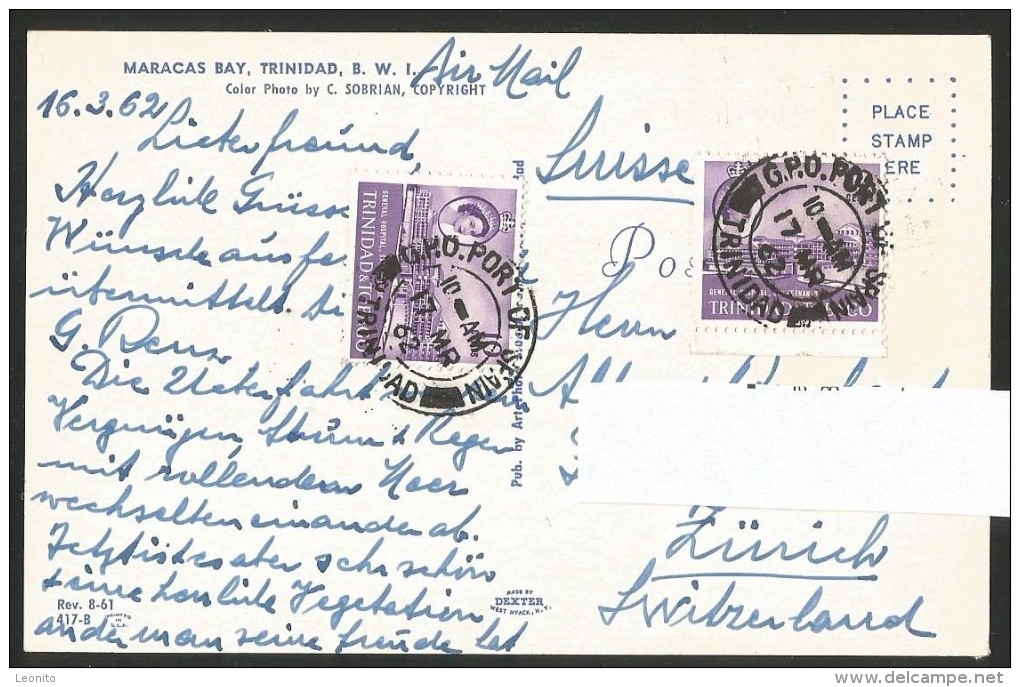 MARACAS BAY, TRINIDAD, B. W. I.
Color Photo by C. SOBRIAN, COPYRIGHT
Air Mail
16.3.62
Lieber freund,
Herzliche Grüsse
Wünsche aus
übermittelt
G. Renz
Die Ueberfahrt
Vergnügen, Sturm & Regen
mit rollendem Meer
wechselten einander ab.
Jetzt ist es aber sehr schön
& eine herrliche Vegetation
an der man seine freude hat
Rev. 8-61
417-B
PRINTED
IN
U.S.A.
Pub. by
MADE BY
DEXTER
WEST NYACK, N.Y.
GENERAL HOSPITAL,
TRINIDAD & TOBAGO
G.P.O. PORT OF SPAIN
TRINIDAD
10 - AM
17 MR
62
PLACE
STAMP
HERE
G.P.O. PORT OF SPAIN
TRINIDAD
10 - AM
17 MR
62
GENERAL
TRINIDAD
Suisse
Herrn
Zürich
Switzerland
Leonito
www.delcampe.net